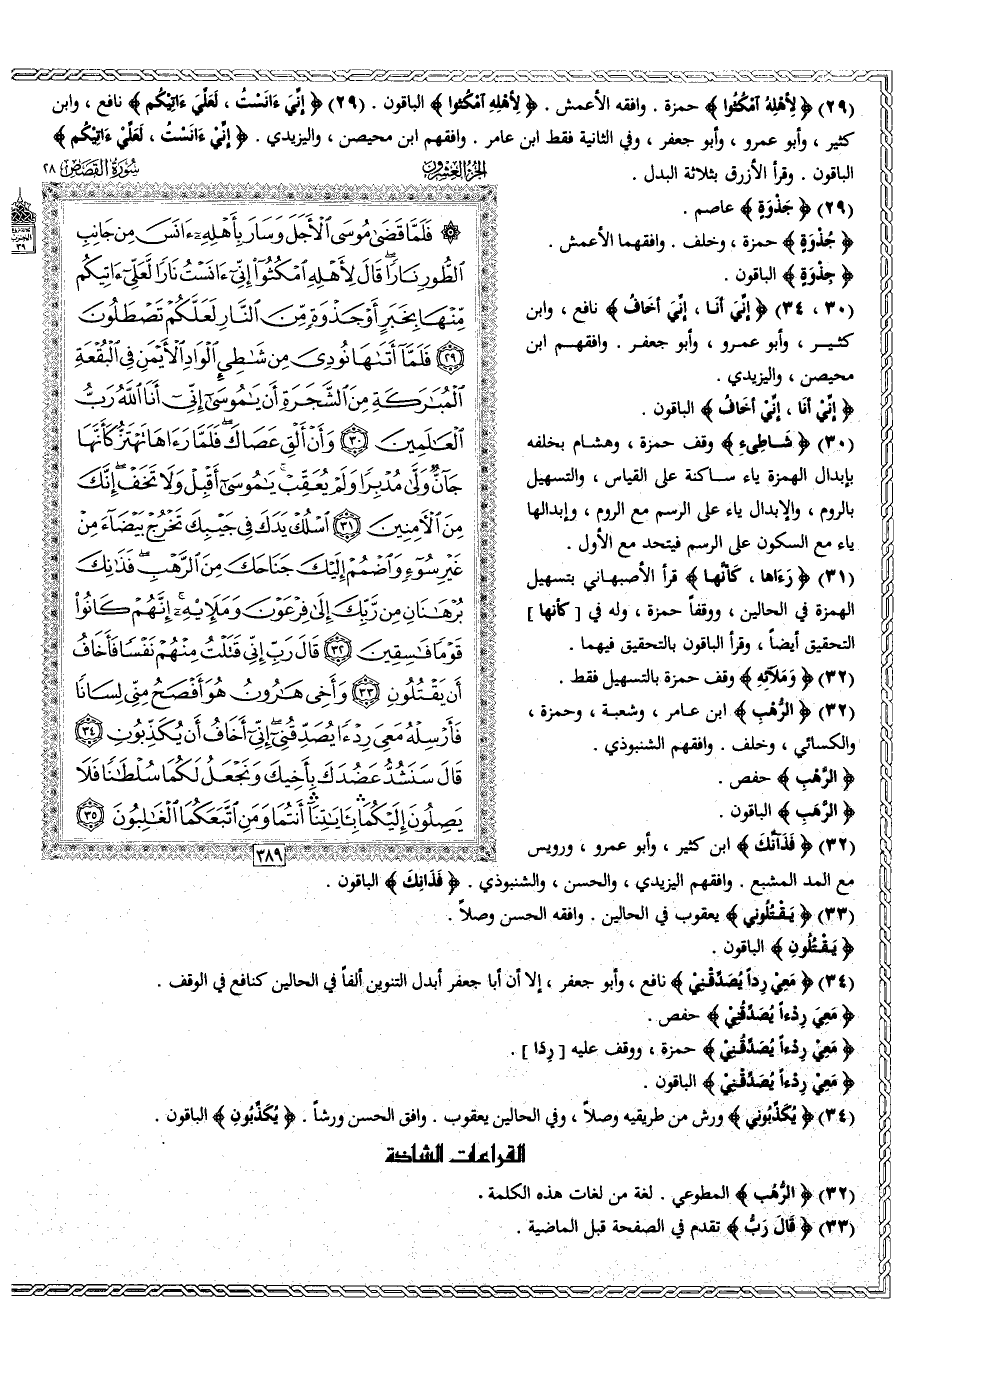 (٢٩) ﴿ لِأَهْلِهُ ٱمْكُثُوا ﴾ حمزة . وافقه الأعمش . ﴿ لِأَهْلِهِ ٱمْكُثُوا ﴾ الباقون . (٢٩) ﴿ إِنِّيَ ءَانَسْتُ ، لَعَلِّيَ ءَاتِيكُم ﴾ نافع ، وابن
كثير ، وأبو عمرو ، وأبو جعفر ، وفي الثانية فقط ابن عامر . وافقهم ابن محيصن ، واليزيدي . ﴿ إِنِّيْ ءَانَسْتُ ، لَعَلِّيْ ءَاتِيكُم ﴾
الباقون . وقرأ الأزرق بثلاثة البدل .
الجزء العشرون
سورة القصص ٢٨
(٢٩) ﴿ جَذْوَةٍ ﴾ عاصم .
﴿ جُذْوَةٍ ﴾ حمزة ، وخلف . وافقهما الأعمش .
﴿ جِذْوَةٍ ﴾ الباقون .
(٣٠ ، ٣٤) ﴿ إِنِّيَ أَنَا ، إِنِّيَ أَخَافُ ﴾ نافع ، وابن
كثير ، وأبو عمرو ، وأبو جعفر . وافقهم ابن
محيصن ، واليزيدي .
﴿ إِنِّيْ أَنَا ، إِنِّيْ أَخَافُ ﴾ الباقون .
(٣٠) ﴿ شَاطِىءِ ﴾ وقف حمزة ، وهشام بخلفه
بإبدال الهمزة ياء ساكنة على القياس ، والتسهيل
بالروم ، والإبدال ياء على الرسم مع الروم ، وإبدالها
ياء مع السكون على الرسم فيتحد مع الأول .
(٣١) ﴿ رَءَاهَا ، كَأَنَّهَا ﴾ قرأ الأصبهاني بتسهيل
الهمزة في الحالين ، ووقفاً حمزة ، وله في [ كأنها ]
التحقيق أيضاً ، وقرأ الباقون بالتحقيق فيهما .
(٣٢) ﴿ وَمَلَائِهِ ﴾ وقف حمزة بالتسهيل فقط .
(٣٢) ﴿ الرُّهْبِ ﴾ ابن عامر ، وشعبة ، وحمزة ،
والكسائي ، وخلف . وافقهم الشنبوذي .
﴿ الرَّهْبِ ﴾ حفص .
﴿ الرَّهَبِ ﴾ الباقون .
(٣٢) ﴿ فَذَآنِّكَ ﴾ ابن كثير ، وأبو عمرو ، ورويس
۞ فَلَمَّا قَضَىٰ مُوسَى ٱلْأَجَلَ وَسَارَ بِأَهْلِهِۦٓ ءَانَسَ مِن جَانِبِ
ٱلطُّورِ نَارًا قَالَ لِأَهْلِهِ ٱمْكُثُوٓا۟ إِنِّىٓ ءَانَسْتُ نَارًا لَّعَلِّىٓ ءَاتِيكُم
مِّنْهَا بِخَبَرٍ أَوْ جَذْوَةٍ مِّنَ ٱلنَّارِ لَعَلَّكُمْ تَصْطَلُونَ
۝٢٩ فَلَمَّآ أَتَىٰهَا نُودِىَ مِن شَٰطِئِ ٱلْوَادِ ٱلْأَيْمَنِ فِى ٱلْبُقْعَةِ
ٱلْمُبَٰرَكَةِ مِنَ ٱلشَّجَرَةِ أَن يَٰمُوسَىٰٓ إِنِّىٓ أَنَا ٱللَّهُ رَبُّ
ٱلْعَٰلَمِينَ ۝٣٠ وَأَنْ أَلْقِ عَصَاكَ ۖ فَلَمَّا رَءَاهَا تَهْتَزُّ كَأَنَّهَا
جَآنٌّ وَلَّىٰ مُدْبِرًا وَلَمْ يُعَقِّبْ ۚ يَٰمُوسَىٰٓ أَقْبِلْ وَلَا تَخَفْ ۖ إِنَّكَ
مِنَ ٱلْـَٔامِنِينَ ۝٣١ ٱسْلُكْ يَدَكَ فِى جَيْبِكَ تَخْرُجْ بَيْضَآءَ مِنْ
غَيْرِ سُوٓءٍ وَٱضْمُمْ إِلَيْكَ جَنَاحَكَ مِنَ ٱلرَّهْبِ ۖ فَذَٰنِكَ
بُرْهَٰنَانِ مِن رَّبِّكَ إِلَىٰ فِرْعَوْنَ وَمَلَإِي۟هِۦٓ ۚ إِنَّهُمْ كَانُوا۟
قَوْمًا فَٰسِقِينَ ۝٣٢ قَالَ رَبِّ إِنِّى قَتَلْتُ مِنْهُمْ نَفْسًا فَأَخَافُ
أَن يَقْتُلُونِ ۝٣٣ وَأَخِى هَٰرُونُ هُوَ أَفْصَحُ مِنِّى لِسَانًا
فَأَرْسِلْهُ مَعِىَ رِدْءًا يُصَدِّقُنِىٓ ۖ إِنِّىٓ أَخَافُ أَن يُكَذِّبُونِ ۝٣٤
قَالَ سَنَشُدُّ عَضُدَكَ بِأَخِيكَ وَنَجْعَلُ لَكُمَا سُلْطَٰنًا فَلَا
يَصِلُونَ إِلَيْكُمَا ۚ بِـَٔايَٰتِنَآ أَنتُمَا وَمَنِ ٱتَّبَعَكُمَا ٱلْغَٰلِبُونَ ۝٣٥
٣٨٩
مع المد المشبع . وافقهم اليزيدي ، والحسن ، والشنبوذي . ﴿ فَذَانِكَ ﴾ الباقون .
(٣٣) ﴿ يَقْتُلُونِي ﴾ يعقوب في الحالين . وافقه الحسن وصلاً .
﴿ يَقْتُلُونِ ﴾ الباقون .
(٣٤) ﴿ مَعِيْ رِداً يُصَدِّقْنِيْ ﴾ نافع ، وأبو جعفر ، إلا أن أبا جعفر أبدل التنوين ألفاً في الحالين كنافع في الوقف .
﴿ مَعِيَ رِدْءاً يُصَدِّقُنِيْ ﴾ حفص .
﴿ مَعِيْ رِدْءاً يُصَدِّقُنِيْ ﴾ حمزة ، ووقف عليه [ رِدَا ] .
﴿ مَعِيْ رِدْءاً يُصَدِّقْنِيْ ﴾ الباقون .
(٣٤) ﴿ يُكَذِّبُونِي ﴾ ورش من طريقيه وصلاً ، وفي الحالين يعقوب . وافق الحسن ورشاً . ﴿ يُكَذِّبُونِ ﴾ الباقون .
القراءات الشاذة
(٣٢) ﴿ الرُّهُبِ ﴾ المطوعي . لغة من لغات هذه الكلمة .
(٣٣) ﴿ قَالَ رَبُّ ﴾ تقدم في الصفحة قبل الماضية .